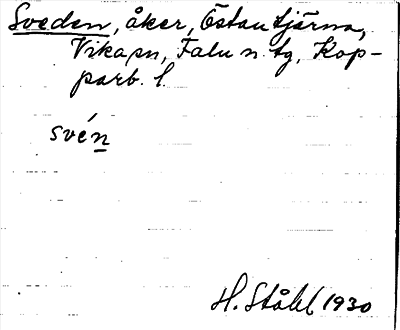 Sveden, åker, Östantjärna,
Vika sn, Falu n. tg, Kop-
parb. l.
svén
H. Ståhl 1930